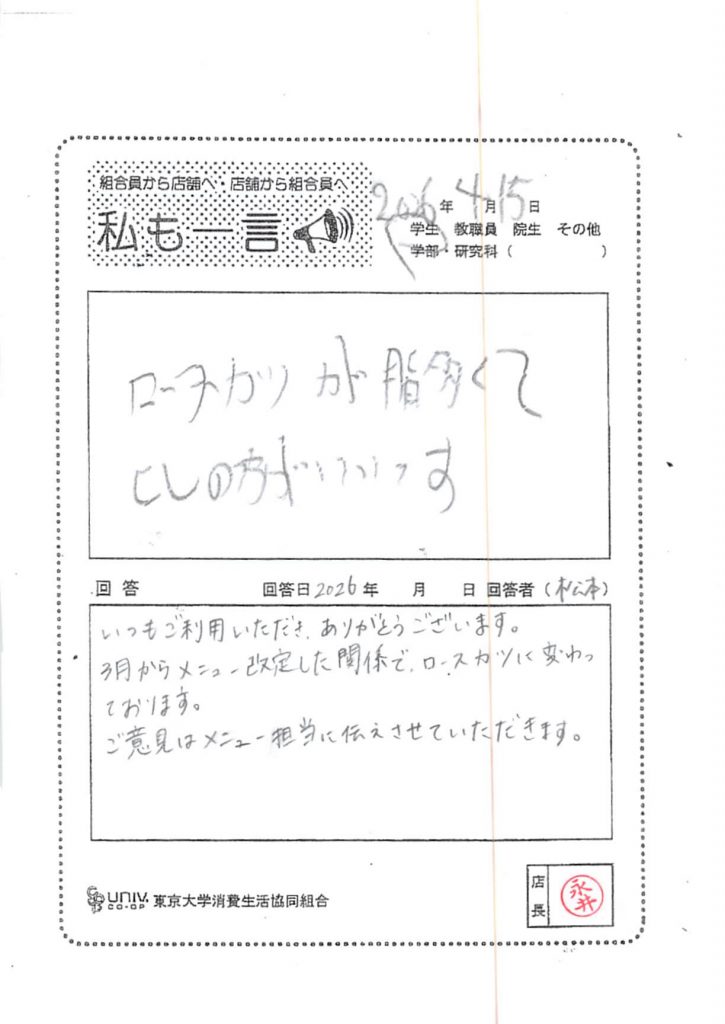 組合員から店舗へ・店舗から組合員へ
私も一言
2026年4月15日
学生 教職員 院生 その他
学部・研究科( )
ロースカツが脂多くて
ヒレの方がいいです
回答 回答日2026年 月 日 回答者(松本)
いつもご利用いただき、ありがとうございます。
3月からメニュー改定した関係で、ロースカツに変わっ
ております。
ご意見はメニュー担当に伝えさせていただきます。
UNIV. CO-OP 東京大学消費生活協同組合
店長
永井